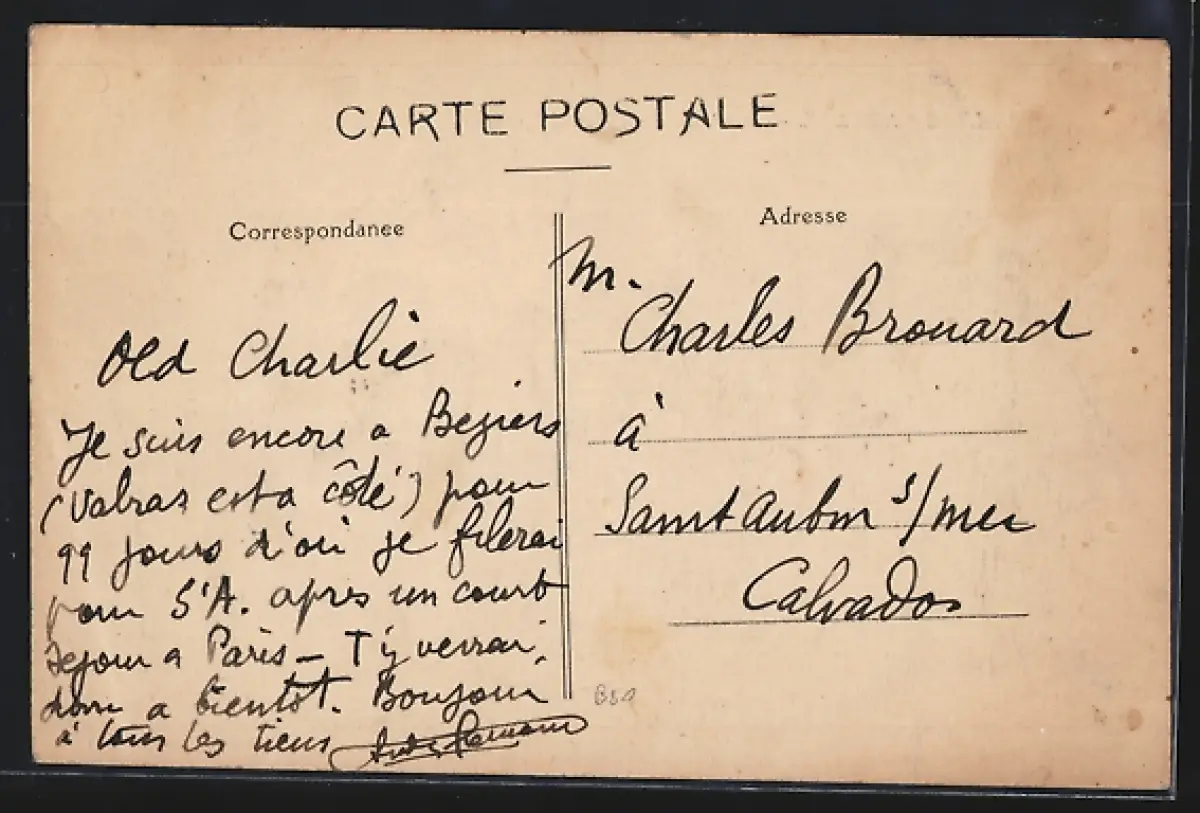 CARTE POSTALE
Correspondance
Adresse
Old Charlie
Je suis encore a Beziers
(Valras est a côté) pour
99 jours d'où je filerai
pour St A. apres un court
sejour a Paris — T'y verrai,
donc a bientôt. Bonjour
à tous les tiens
M.
Charles Brouard
à
Saint Aubin s/mer
Calvados
B59